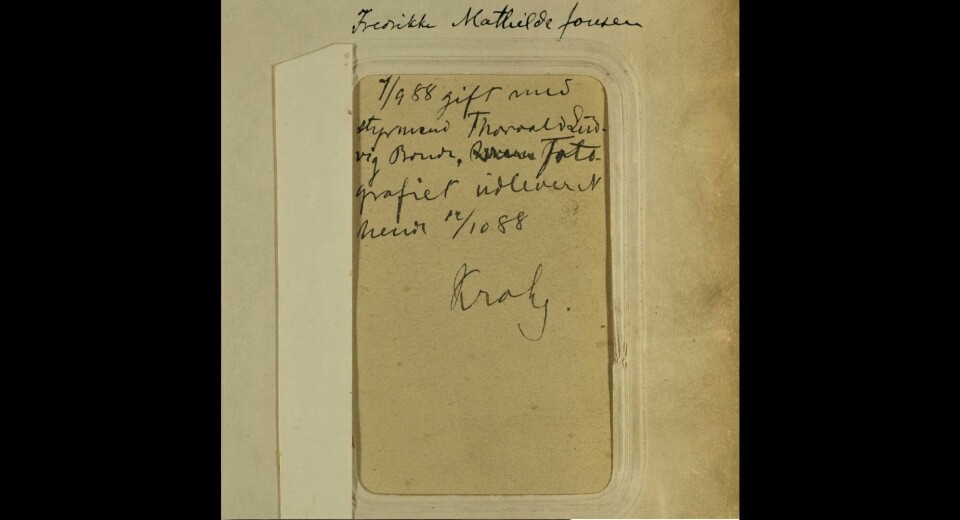 Fredrikke Mathilde Jonsen
7/9 88 gift med
styrmand Thorvald Lud-
vig Bonde, Foto-
grafiet udleveret
hende 12/10 88
Krohg.